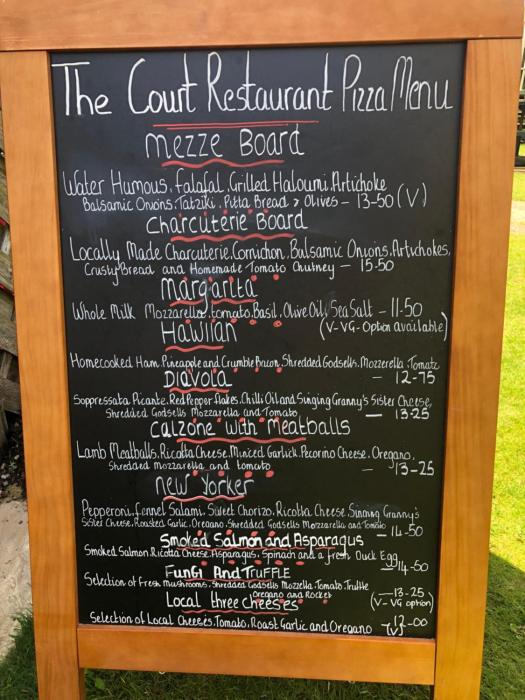 The Court Restaurant Pizza Menu
Mezze Board
Water Humous, falafal, Grilled Haloumi, Artichoke
Balsamic Onions, Tatziki, Pitta Bread & Olives - 13-50 (V)
Charcuterie Board
Locally Made Charcuterie, Cornichon, Balsamic Onions, Artychokes,
Crusty Bread and Homemade Tomato Chutney - 15.50
Margarita
Whole Milk Mozzarella, tomato, Basil, Olive Oil, Sea Salt - 11-50
(V-VG-Option available)
Hawiian
Homecooked Ham, Pineapple and Crumble Bacon, Shredded Godsells, Mozzerella, Tomato
- 12-75
Diavola
Soppressata Picante, Red Pepper flakes, Chilli Oil and Singing Granny's Sister Cheese,
Shredded Godsells Mozzarella and Tomato - 13-25
Calzone with Meatballs
Lamb Meatballs, Ricotta Cheese, Minced Garlick, Pecorino Cheese, Oregano,
Shredded mozzarella and tomato - 13-25
New Yorker
Pepperoni, fennel Salami, Sweet Chorizo, Ricotta Cheese, Singing Granny's
Sister Cheese, Roasted Garlic, Oregano, Shredded Godsells Mozzarella and Tomato - 14-50
Smoked Salmon and Asparagus
Smoked Salmon, Ricotta Cheese, Asparagus, Spinach and a fresh Duck Egg - 14-50
Fungi And Truffle
Selection of Fresh Mushrooms, Shredded Godsells Mozzella, Tomato, Truffle
Oregano and Rocket - 13-25
(V-VG option)
Local three cheeses
Selection of Local Cheeses, Tomato, Roast Garlic and Oregano - 12-00
(V)